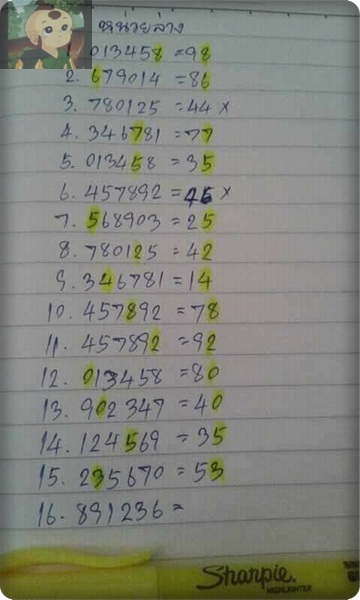 หน่วยล่าง
013458 = 98
2. 679014 = 86
3. 780125 = 44 x
4. 346781 = 77
5. 013458 = 35
6. 457892 = 46 x
7. 568903 = 25
8. 780125 = 42
9. 346781 = 14
10. 457892 = 78
11. 457892 = 92
12. 013458 = 80
13. 902347 = 40
14. 124569 = 35
15. 235670 = 53
16. 891236 =
Sharpie.
HIGHLIGHTER